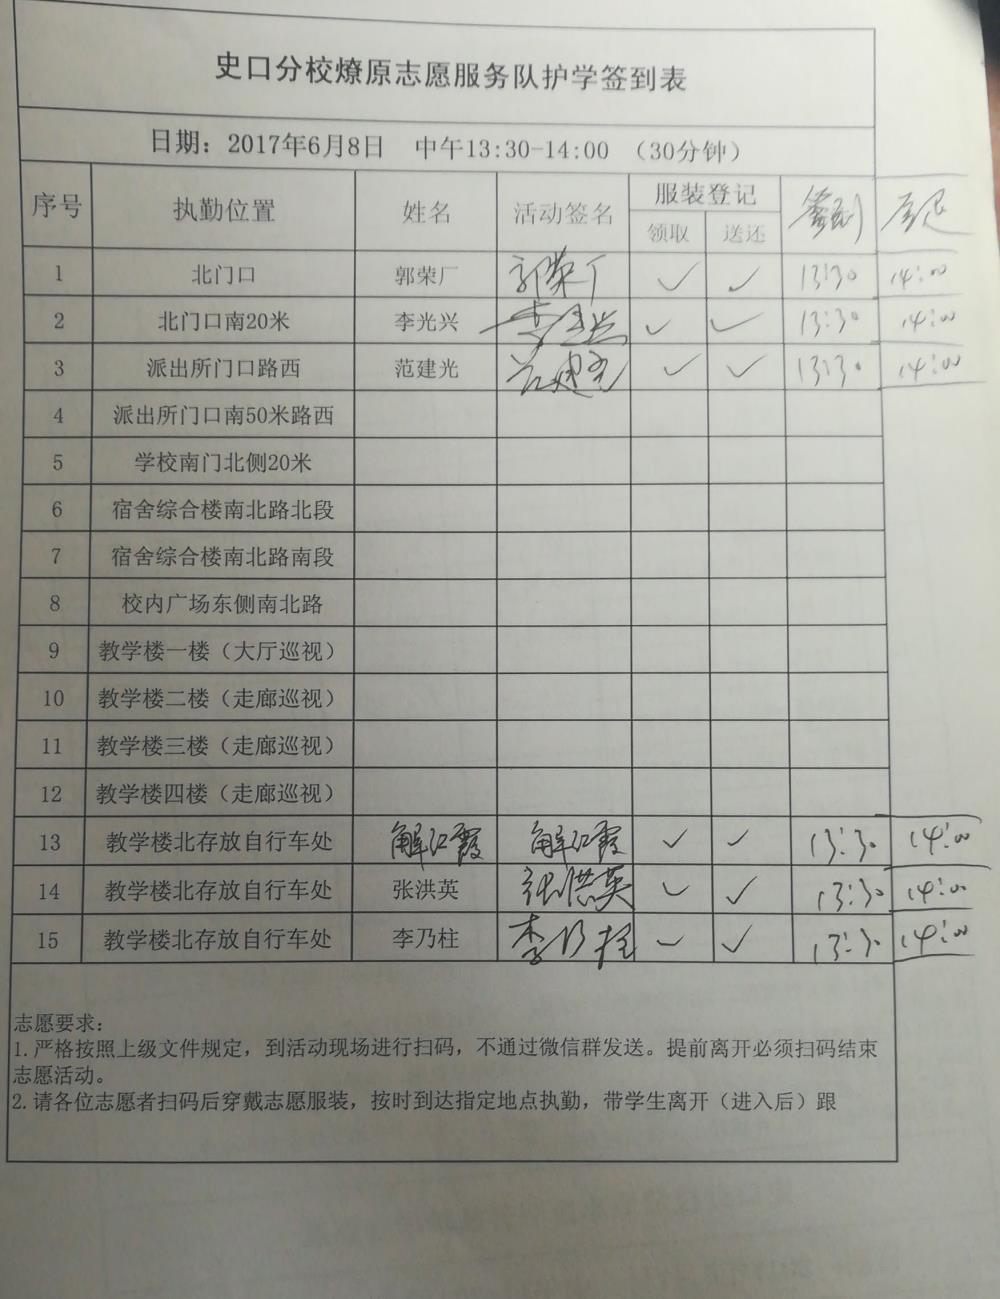 史口分校燎原志愿服务队护学签到表
日期：2017年6月8日 中午13:30-14:00 （30分钟）
序号 执勤位置 姓名 活动签名 服装登记 签到 签退
领取 送还
1 北门口 郭荣厂 郭荣厂 ✓ ✓ 13:30 14:00
2 北门口南20米 李光兴 李光兴 ✓ ✓ 13:30 14:00
3 派出所门口路西 范建光 范建光 ✓ ✓ 13:30 14:00
4 派出所门口南50米路西
5 学校南门北侧20米
6 宿舍综合楼南北路北段
7 宿舍综合楼南北路南段
8 校内广场东侧南北路
9 教学楼一楼（大厅巡视）
10 教学楼二楼（走廊巡视）
11 教学楼三楼（走廊巡视）
12 教学楼四楼（走廊巡视）
13 教学楼北存放自行车处 解红霞 解红霞 ✓ ✓ 13:30 14:00
14 教学楼北存放自行车处 张洪英 张洪英 ✓ ✓ 13:30 14:00
15 教学楼北存放自行车处 李乃柱 李乃柱 ✓ ✓ 13:30 14:00
志愿要求：
1.严格按照上级文件规定，到活动现场进行扫码，不通过微信群发送。提前离开必须扫码结束
志愿活动。
2.请各位志愿者扫码后穿戴志愿服装，按时到达指定地点执勤，带学生离开（进入后）跟